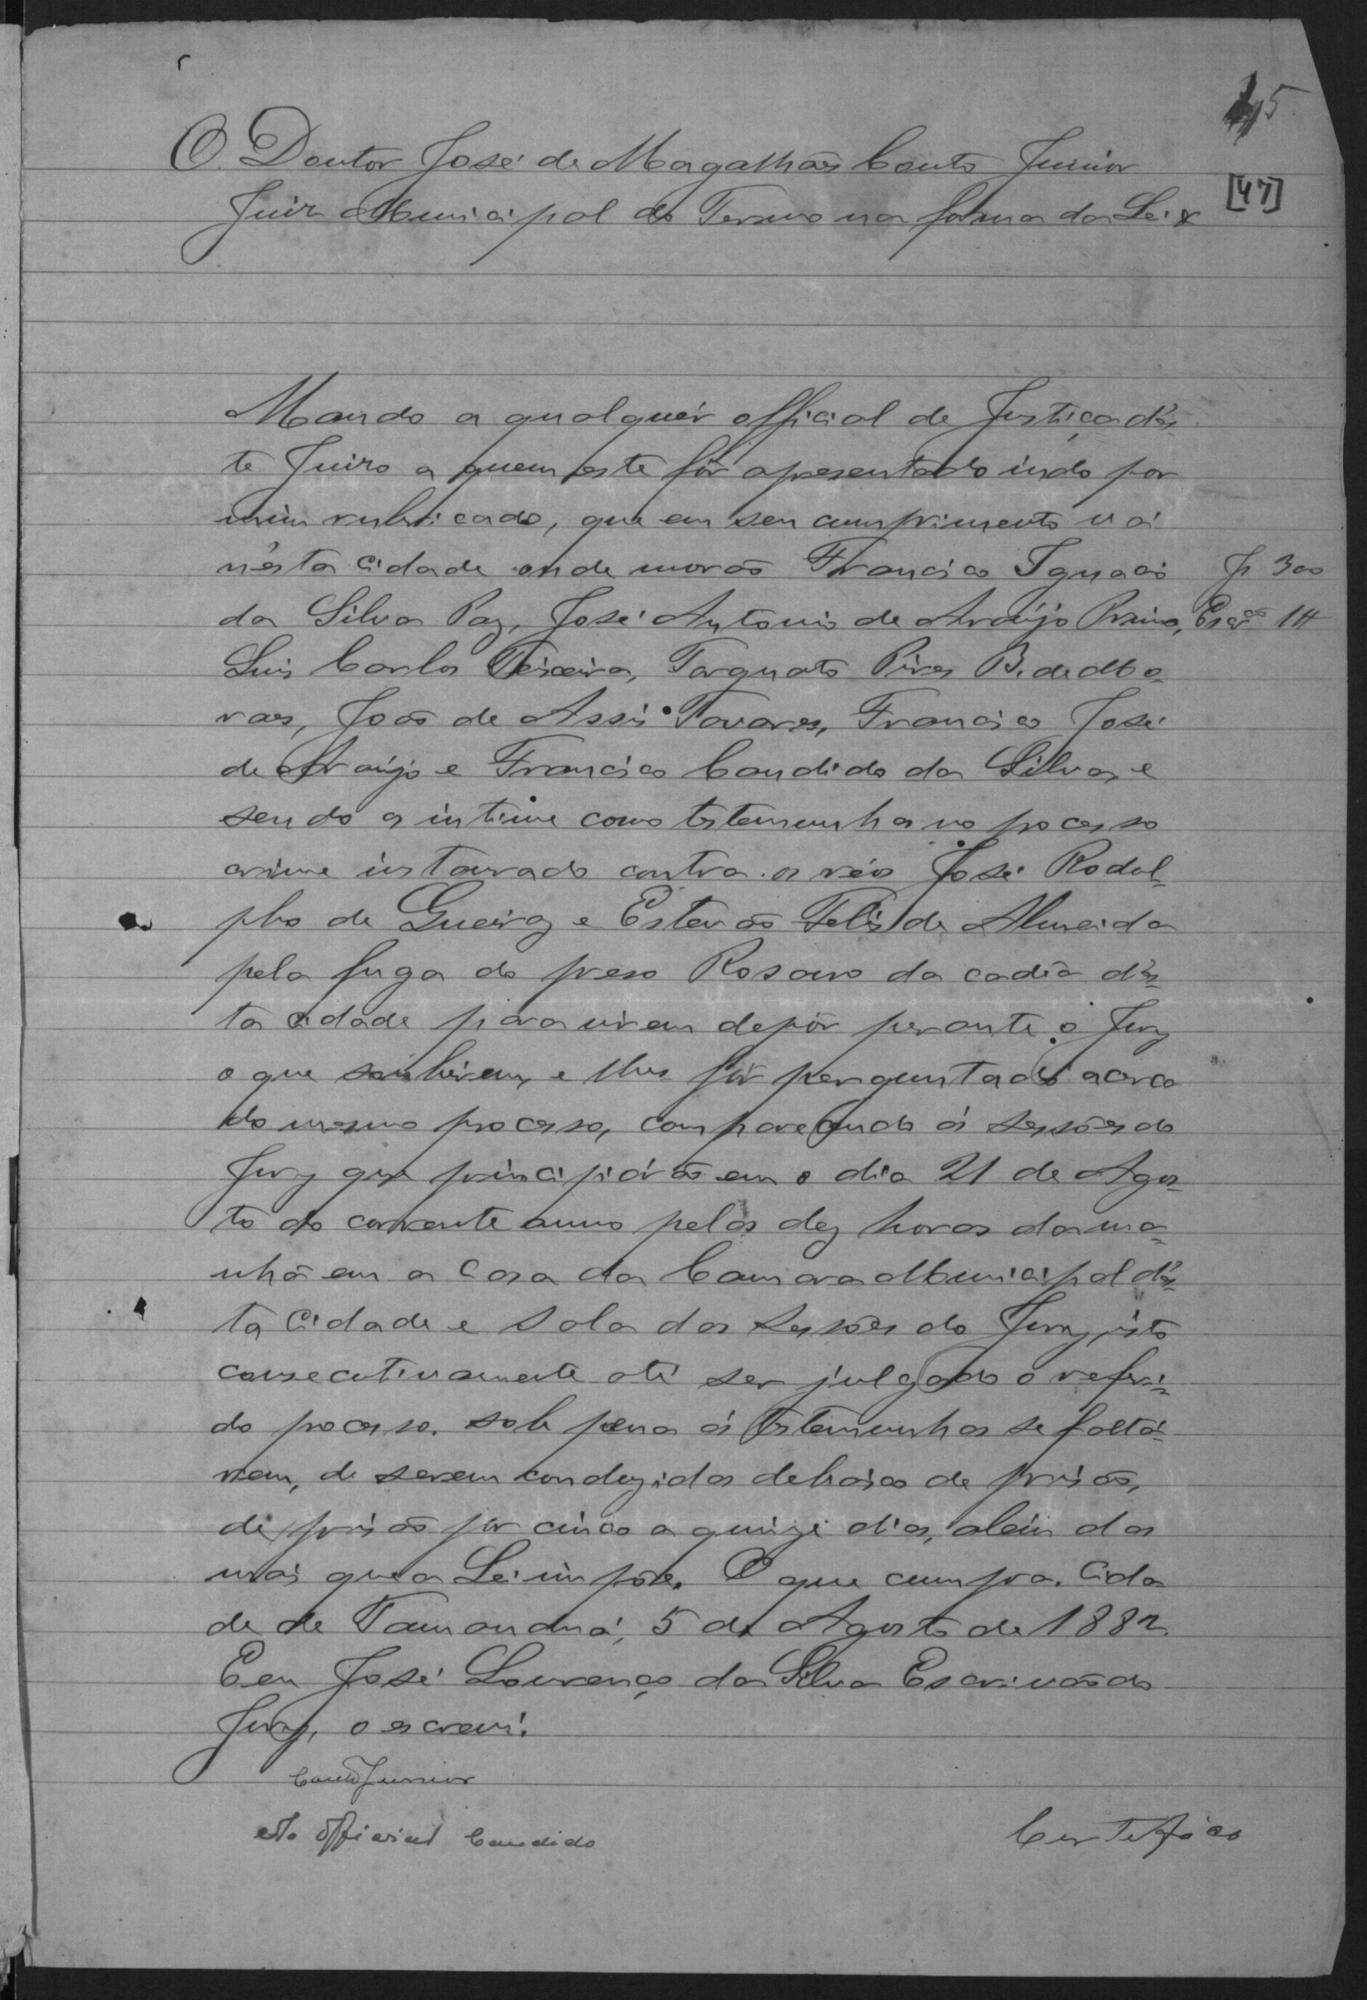 45
[47]
O Doutor José de Magalhães Couto Junior
Juiz Municipal do Termo na forma da Lei &
Mando a qualquér official de Justiça dés-
te Juizo a quem este fôr apresentado indo por
mim rubricado, que em seu cumprimento vá
n'ésta cidade onde morão Francisco Ignacio
da Silva Paz, José Antonio de Araújo
Luis Carlos Teixeira, Torquato Pires B. de Mo-
raes, João de Assis Tavares, Francisco José
de Araújo e Francisco Candido da Silva, e
sendo os intime como testemunhas no processo
crime instaurado contra os réos José Rodol-
pho de Queiroz e Estevão Felis de Almeida
pela fuga do preso Rosano da cadêa dés-
ta cidade para virem depôr perante o Jury
o que souberem, e lhes fôr perguntado acerca
do mesmo processo, comparecendo ás sessões do
Jury que principiárão em o dia 21 de Agos-
to do corrente anno pelas dez horas da ma-
nhã em a Casa da Camara Municipal dés-
ta Cidade e Sala das sessões do Jury, isto
consecutivamente até ser julgado o referi-
do processo. sob pena ás testemunhas se faltá-
rem, de serem conduzidas debaixo de prisão,
de prisão por cinco a quinze dias, além das
mais que a Lei impõe. O que cumpra. Cida
de de Tamanduá, 5 de Agosto de 1882.
E eu José Lourenço da Silva Escrivão do
Jury, o escrevi.
Couto Junior
Ao Official Candido
Certifico
J 300